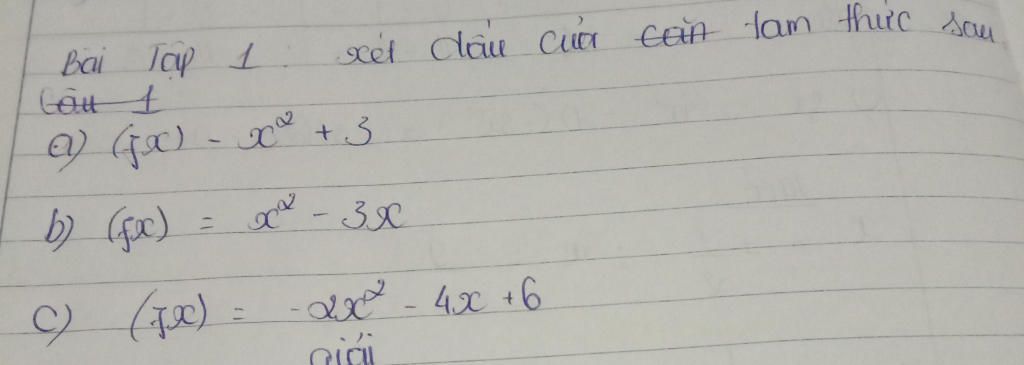 Bài Tập 1. xét dấu của tam thức sau
Câu 1
a) (fx) - x² + 3
b) (fx) = x² - 3x
c) (fx) = -2x² - 4x + 6
Giải